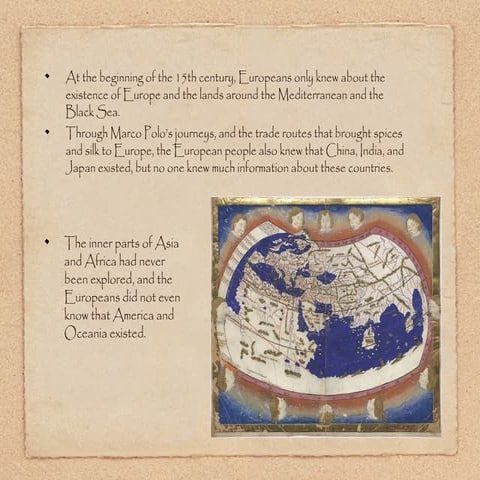 At the beginning of the 15th century, Europeans only knew about the
existence of Europe and the lands around the Mediterranean and the
Black Sea.
Through Marco Polo's journeys, and the trade routes that brought spices
and silk to Europe, the European people also knew that China, India, and
Japan existed, but no one knew much information about these countries.
The inner parts of Asia
and Africa had never
been explored, and the
Europeans did not even
know that America and
Oceania existed.